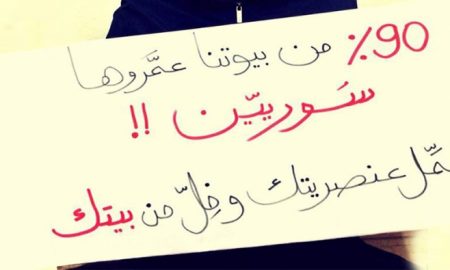 90٪ من بيوتنا عمَّروها
سَوريّين !!
حمِّل عنصريتك وفِلّ من بيتك